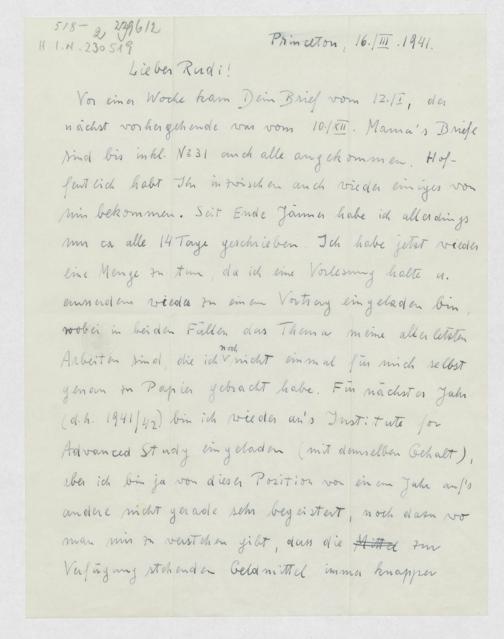 518-2 229612
H I.N. 230519
Princeton, 16./III. 1941.
Lieber Rudi!
Vor einer Woche kam Dein Brief vom 12./I, der
nächst vorhergehende war vom 10./XII. Mama's Briefe
sind bis inkl. № 31 auch alle angekommen. Hof-
fentlich habt Ihr inzwischen auch wieder einiges von
mir bekommen. Seit Ende Jänner habe ich allerdings
nur ca alle 14 Tage geschrieben. Ich habe jetzt wieder
eine Menge zu tun, da ich eine Vorlesung halte u.
ausserdem wieder zu einem Vortrag eingeladen bin,
wobei in beiden Fällen das Thema meine allerletzten
Arbeiten sind, die ich noch nicht einmal für mich selbst
genau zu Papier gebracht habe. Für nächstes Jahr
(d.h. 1941/42) bin ich wieder an's Institute for
Advanced Study eingeladen (mit demselben Gehalt),
aber ich bin ja von dieser Position von einem Jahr auf's
andere nicht gerade sehr begeistert, noch dazu wo
man mir zu verstehen gibt, dass die Mittel zur
Verfügung stehenden Geldmittel immer knapper